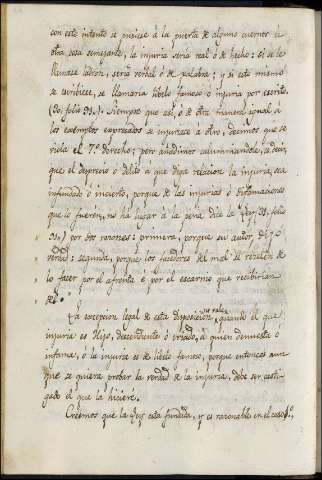 con este intento se pusiese á la puerta de alguno cuernos ú
otra cosa semejante, la injuria sería real ó de hecho: si se le
llamase ladron, sería verbal ó de palabra; y si esto mismo
se escribiese, se llamaría libelo famoso ó injuria por escrito
Siempre que así, ó de otra manera igual á
los exemplos expresados se injuriase á otro, decimos que se
viola el 7.º derecho; pero añadimos calumniandole, es decir,
que el desprecio ó delito á que diga relacion la injuria, sea
infundado ó incierto, porque de las injurias ó difamaciones
que lo fueren, no ha lugar á la pena dice la Ley
por dos razones: primera, porque su autor dijo
verdad: segunda, porque los facedores del mal se recelen de
lo facer por el afrenta é por el escarnio que recibirian
del.
La excepcion legal de esta disposicion no vale, quando el que
injuria es Hijo, descendiente ó criado, á quien denuesta ó
infama, ó la injuria es de libelo famoso, porque entonces aun
que se quiera probar la verdad de la injuria, debe ser casti-
gado el que la hiciere.
Creemos que la Ley está fundada, y es razonable en el caso 1.º,